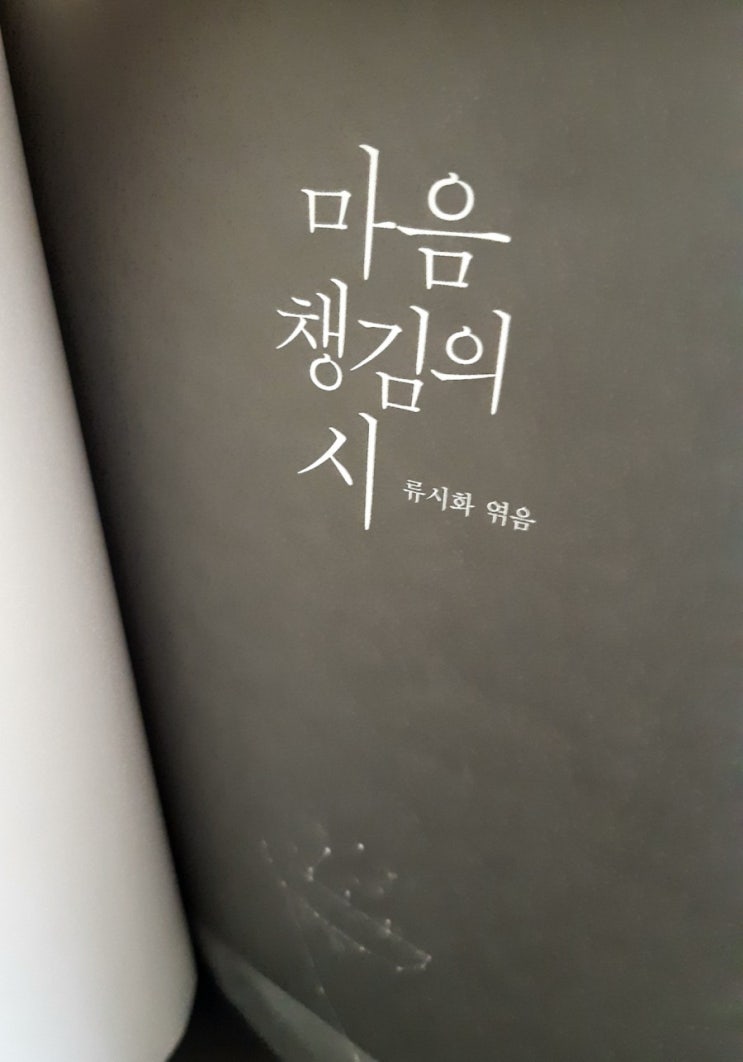 마음
챙김의
시
류시화 엮음